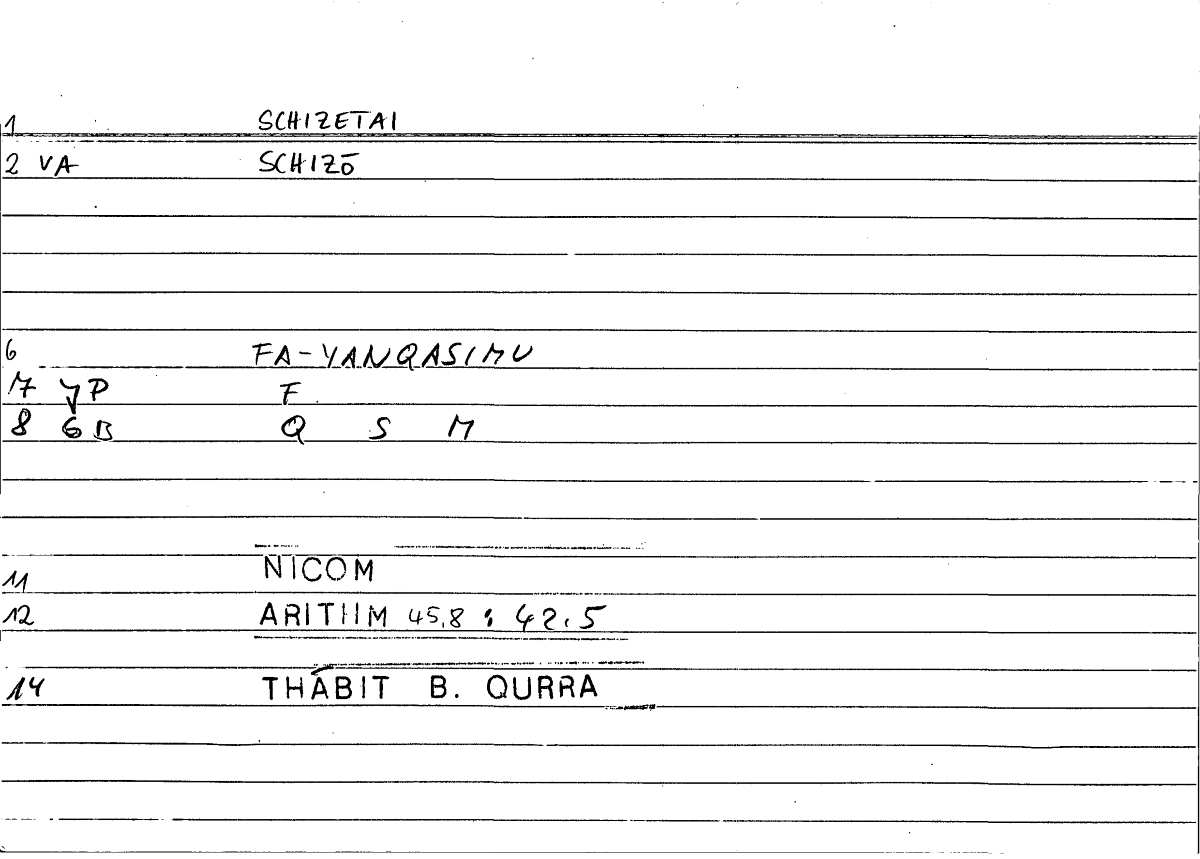 1 SCHIZETAI
2 VA SCHIZŌ
6 FA-YANQASIMU
M YP F
8 GB Q S M
11 NICOM
12 ARITHM 45,8 : 42.5
14 THĀBIT B. QURRA